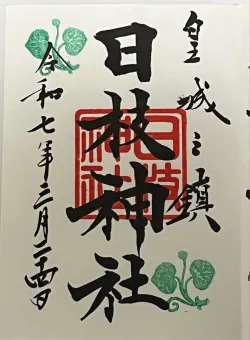 皇城之鎮
日枝神社
令和七年三月二十四日
日枝神社